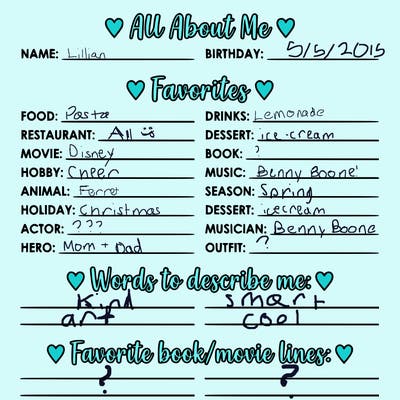 All About Me
NAME: Lillian BIRTHDAY: 5/5/2015
Favorites
FOOD: Pasta DRINKS: Lemonade
RESTAURANT: All DESSERT: ice-cream
MOVIE: Disney BOOK: ?
HOBBY: Cheer MUSIC: Benny Boone'
ANIMAL: Ferret SEASON: Spring
HOLIDAY: Christmas DESSERT: icecream
ACTOR: ??? MUSICIAN: Benny Boone
HERO: Mom + Dad OUTFIT: ?
Words to describe me:
Kind smart
art cool
Favorite book/movie lines:
? ?